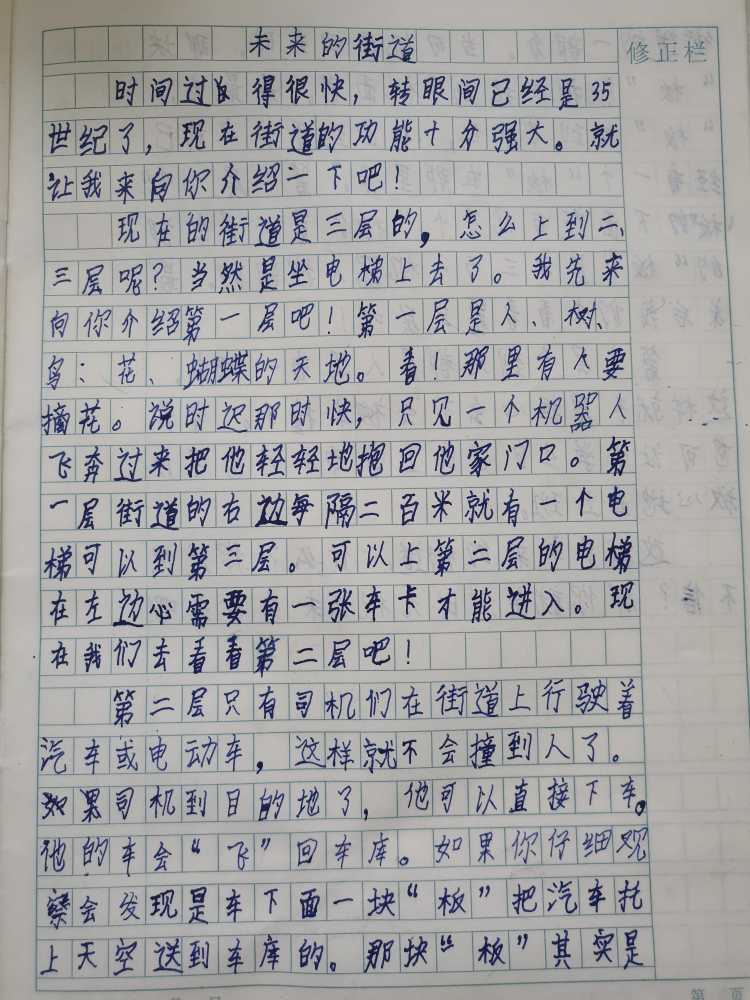 未来的街道
修正栏
时间过得很快，转眼间已经是35
世纪了，现在街道的功能十分强大。就
让我来向你介绍一下吧！
现在的街道是三层的，怎么上到二、
三层呢？当然是坐电梯上去了。我先来
向你介绍第一层吧！第一层是人、树、
鸟；花、蝴蝶的天地。看！那里有人要
摘花。说时迟那时快，只见一个机器人
飞奔过来把他轻轻地抱回他家门口。第
一层街道的右边每隔二百米就有一个电
梯可以到第三层。可以上第二层的电梯
在左边必需要有一张车卡才能进入。现
在我们去看看第二层吧！
第二层只有司机们在街道上行驶着
汽车或电动车，这样就不会撞到人了。
如果司机到目的地了，他可以直接下车。
他的车会“飞”回车库。如果你仔细观
察会发现是车下面一块“板”把汽车托
上天空送到车库的。那块“板”其实是